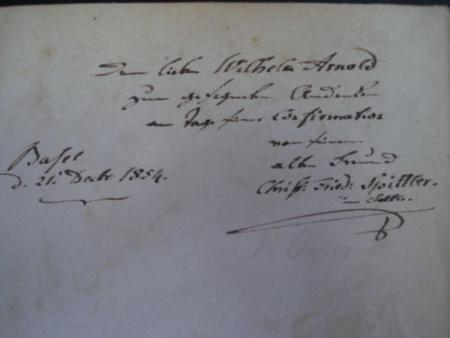 Dem lieben Wilhelm Arnold
zum gesegneten Andenken
am Tage seiner Confirmation
von seinem
alten Freund
Christ. Fried: Spittler.
Basel
d. 21. Decbr 1854.